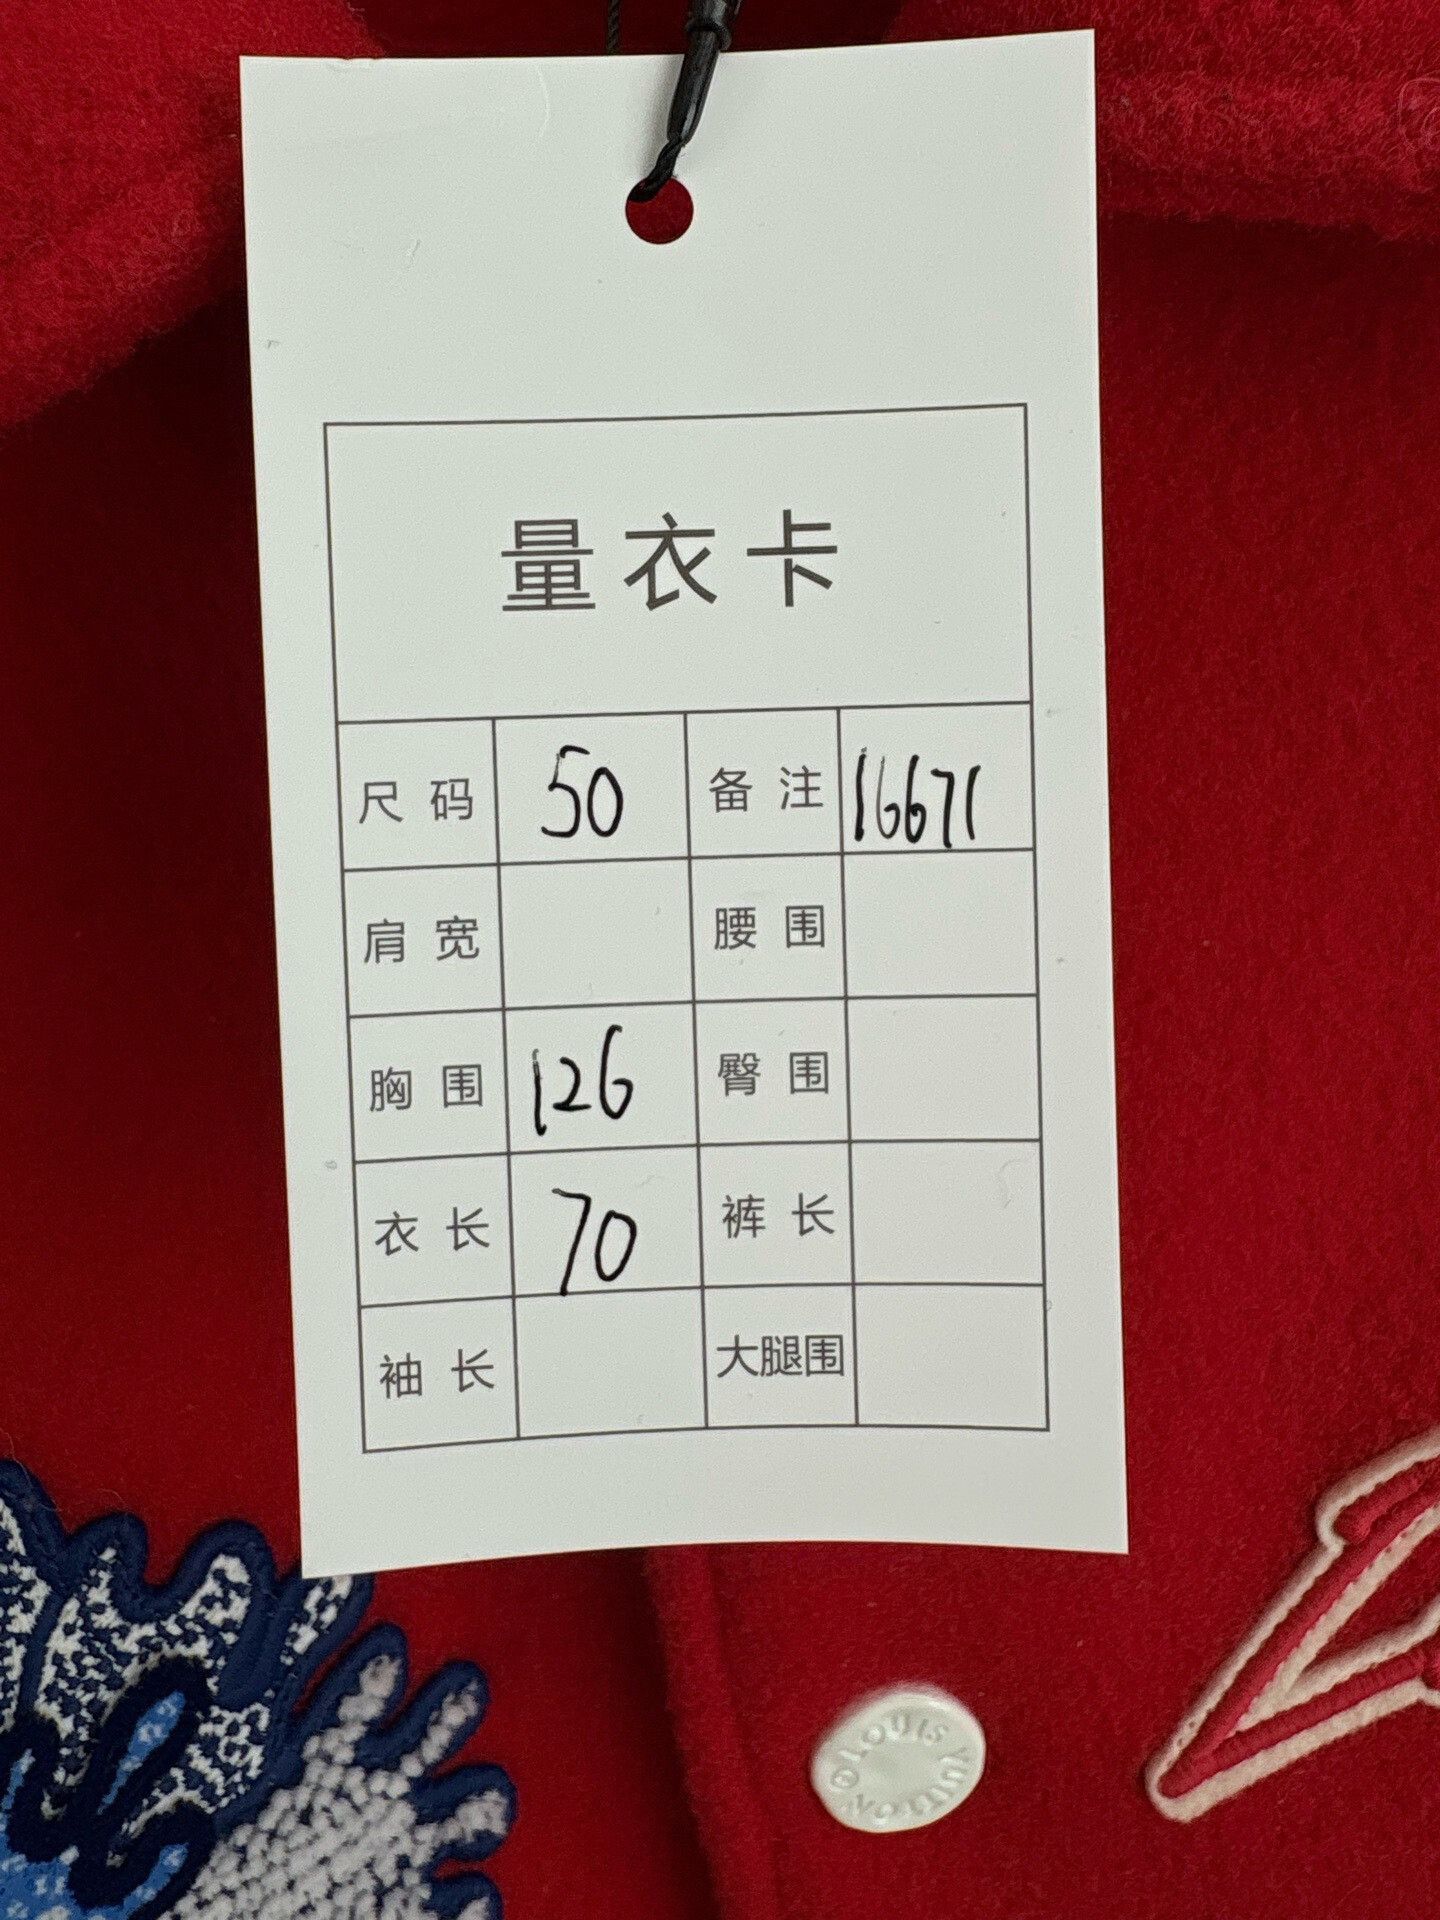 量衣卡
尺码 50 备注 16671
肩宽 腰围
胸围 126 臀围
衣长 70 裤长
袖长 大腿围
LOUIS VUITTON